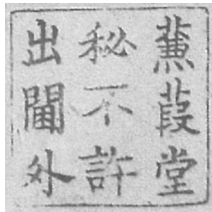 蒹葭堂
秘不許
出閫外